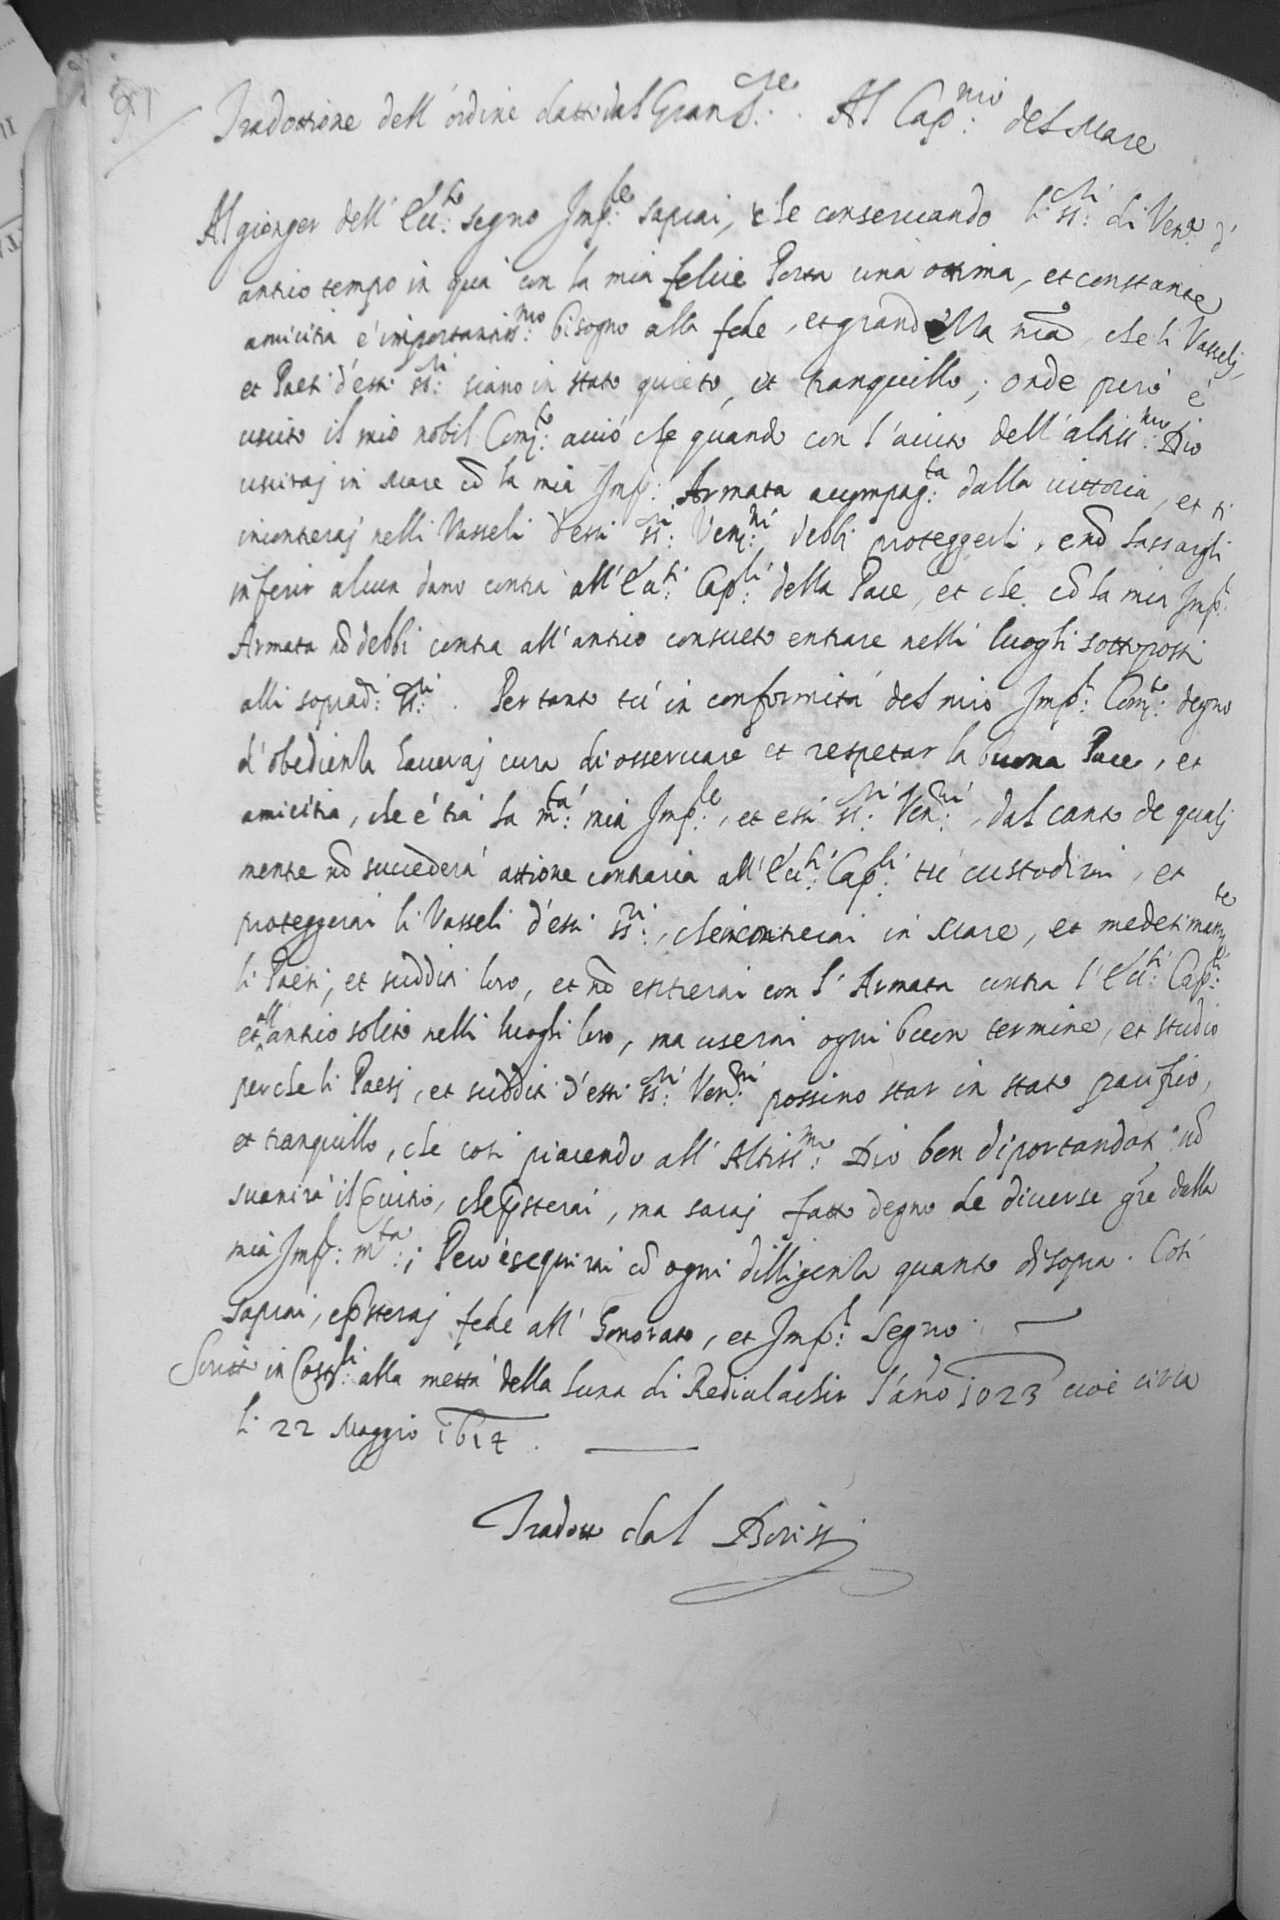 Tradottione dell'ordine datto dal Gran S.re. Al Cap.nio del Mare
Al gionger dell' Ecc.to segno Imp.le saprai, che conservando li SS.ri di Ven.a d'
antico tempo in quà con la mia felice Porta una ottima, et constante
amicitia è importantiss.mo bisogno alla fede, et grandezza n̄ra, che li Vasselj,
et Paesi d'essi SS.ri siano in stato quieto, et tranquillo; onde però è
uscito il mio nobil Com.to acciò che quando con l'aiuto dell'altiss.mo Dio
usciraj in Mare cō la mia Imp.l Armata acompag.ta dalla vittoria, et ti
incontreraj nelli Vasseli d'essi SS.ri Ven.ni debbi proteggerli, e nō lassargli
inferir alcun dano contra all' Ecc.ti Cap.li della Pace, et che cō la mia Imp.l
Armata nō debbi contra all'antico consueto entrare nelli luoghi sottoposti
alli soprad.i SS.ri. Per tanto tù in conformità del mio Imp.l Com.to degno
d'obedienza haveraj cura di osservare et respetar la buona Pace, et
amicitia, che è trà la M.tà mia Imp.le, et essi SS.ri Ven.ni, dal canto de qualj
mentre nō succederà attione contraria all' Ecc.ti Cap.li tù custodirai, et
proteggerai li Vasseli d'essi SS.ri, che incontrerai in Mare, et medesimam.te
li Paesi, et sudditi loro, et nō entrerai con l'Armata contra l' Ecc.ti Cap.li
et all' antico solito nelli luoghi loro, ma userai ogni buon termine, et studio
perche li Paesj, et sudditi d'essi SS.ri Ven.ni possino star in stato pacifico,
et tranquillo, che così piacendo all' Altiss.mo Dio ben diportandoti nō
svanirà il servitio, che p̄sterai, ma saraj fatto degno de diverse gr̄e dalla
mia Imp.l M.tà; Però esequirai cō ogni dilligenza quanto di sopra. Così
saprai, e p̄steraj fede all' honorato, et Imp.l Segno.
Scritt in Cost.li alla mettà della luna di Rediulachir l'āno 1023 cioè circa
li 22 Maggio 1614.
Tradott dal Borissi